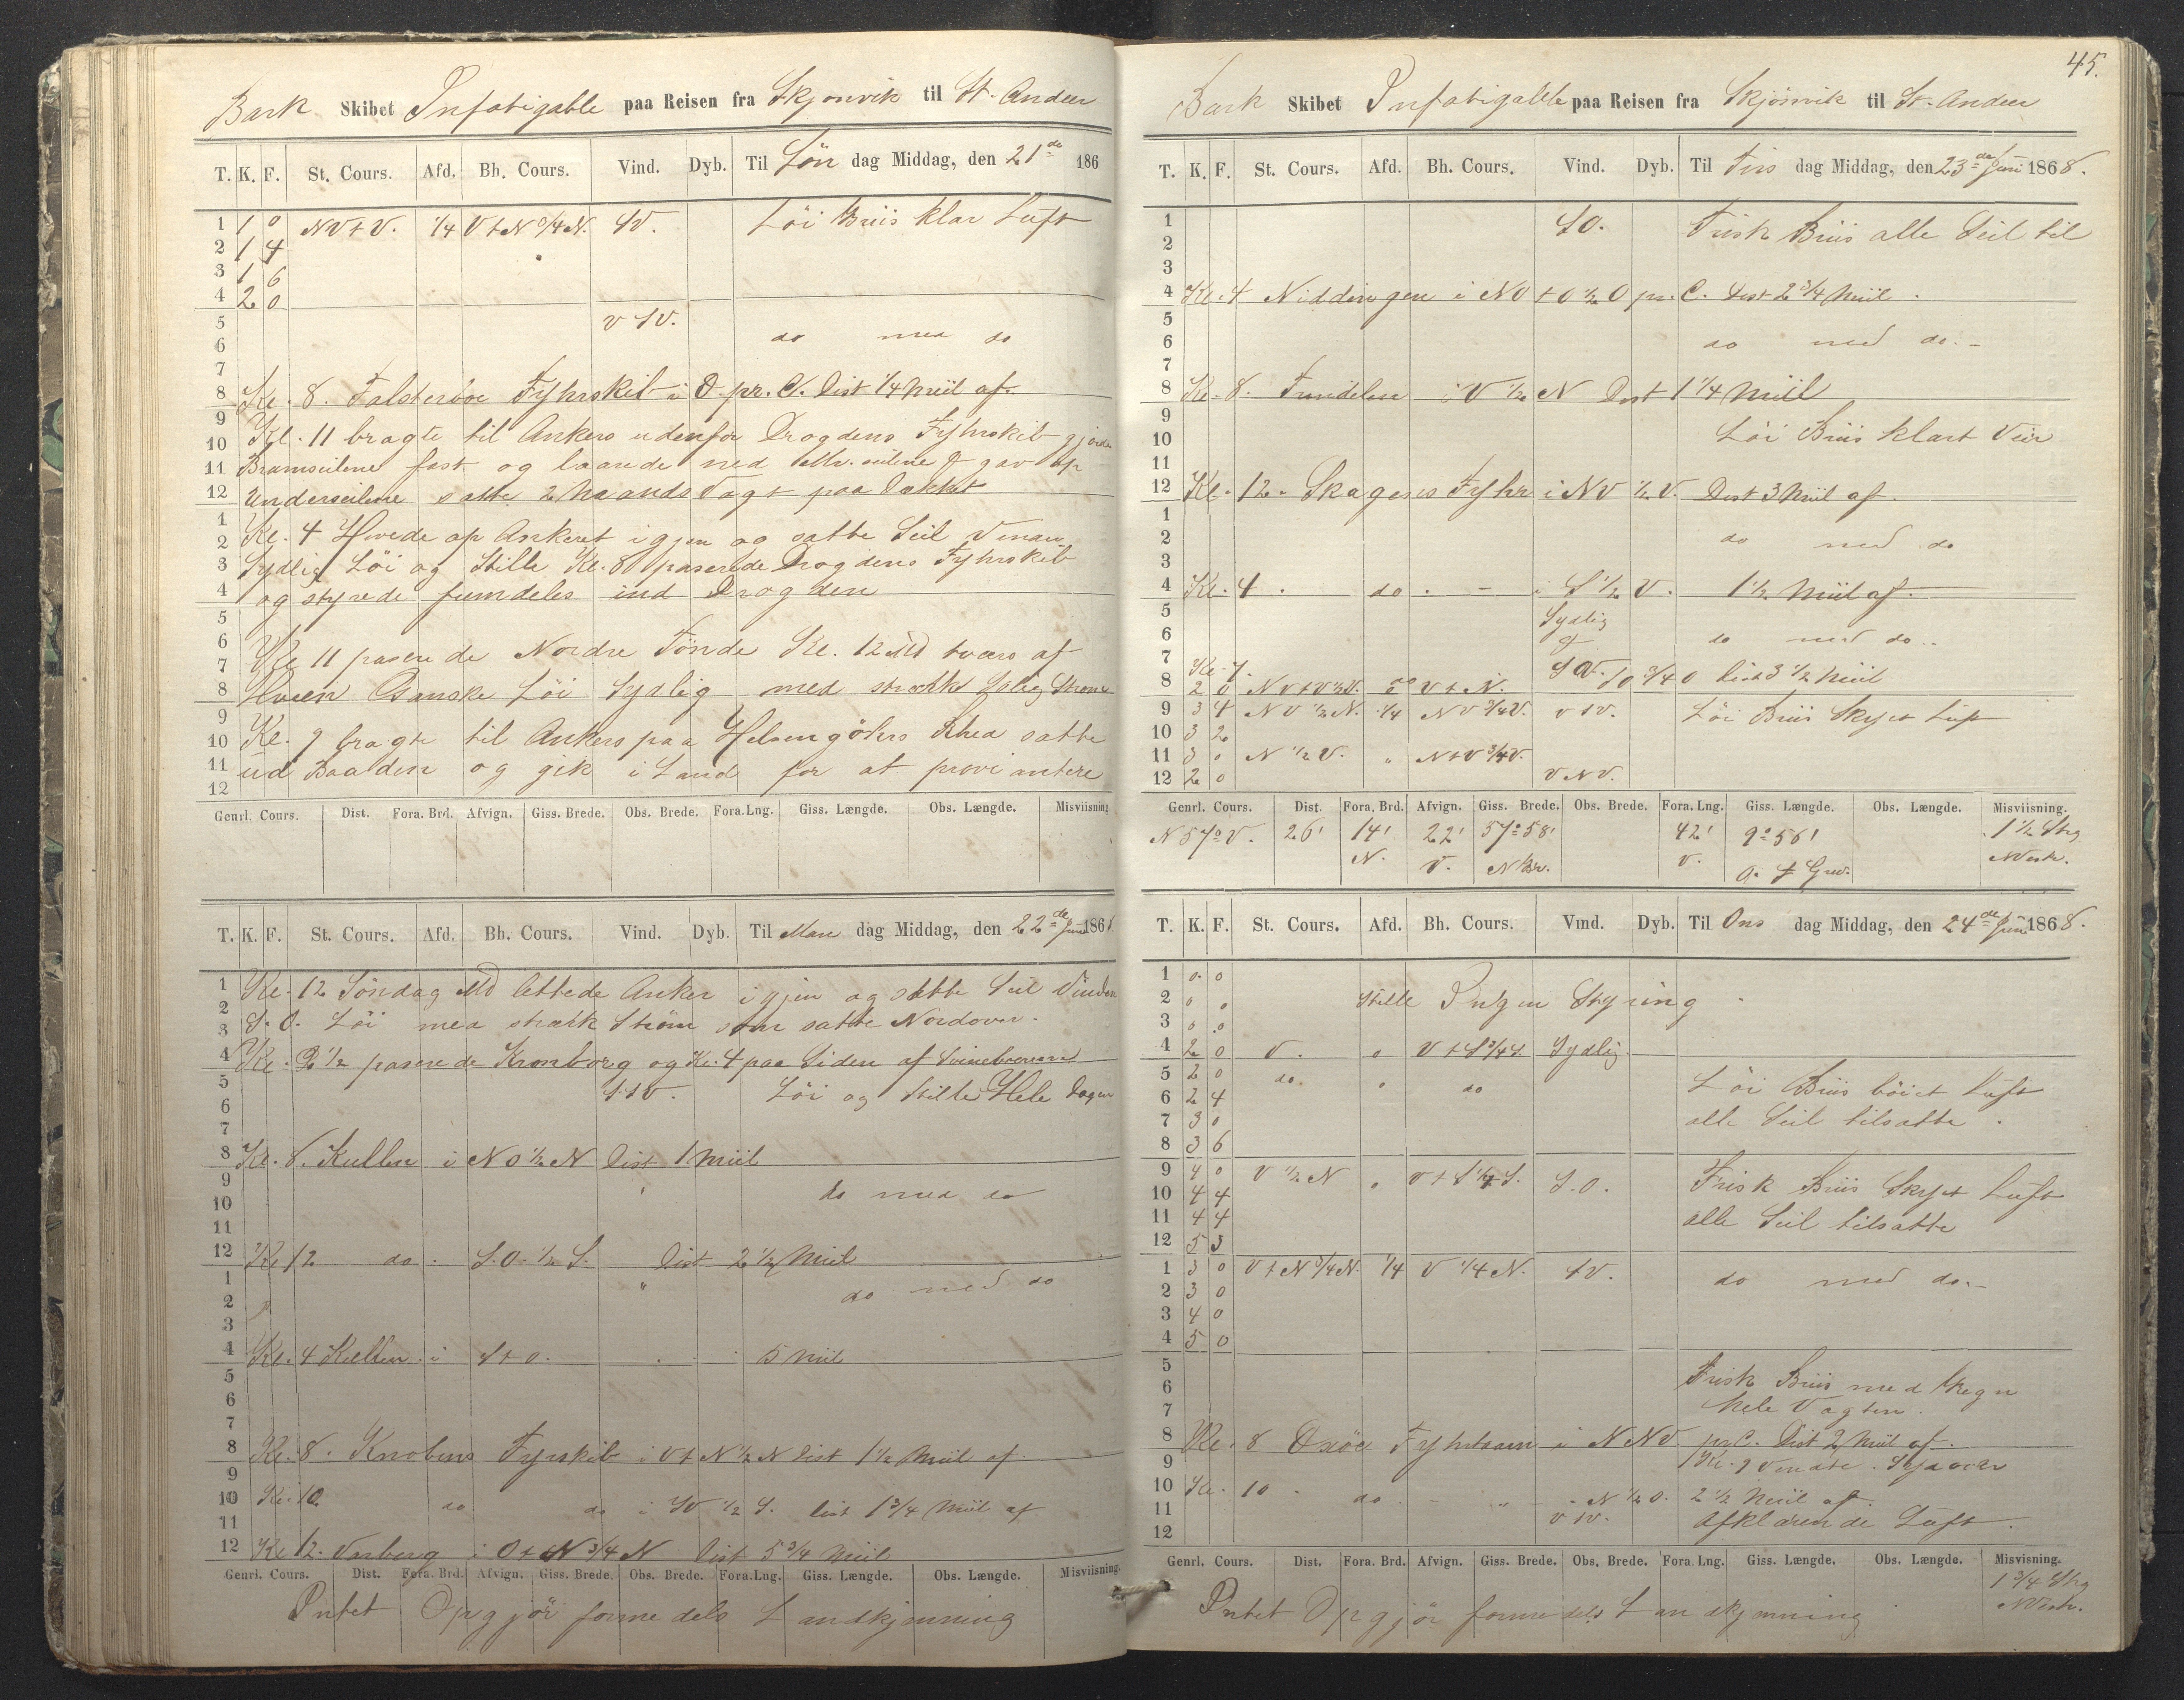 Bark Skibet Infatigable paa Reisen fra Skjonvik til St. Andeer
T. K. F. St. Cours. Afd. Bh. Cours. Vind. Dyb. Til Søn dag Middag, den 21de 186
1 1 0 NVtV. 1/4 VtN 3/4 N. SV. Löi Briis klar Luft
2 1 4
3 1 6
4 2 0
5 VSV.
6 do med do
7
8 Kl. 8. Falsterboe Fyhrskib i O. pr. C. Dist 1/4 Miil af.
9
10 Kl. 11 bragte til Ankers udenfor Drogdens Fyhrskib gjorde
11 Bramseilene fast og laarede ned Mrs. seilene & gav op
12 Underseilene satte 2 Mands Vagt paa Dækket
1
2 Kl. 4 Hivede op Ankeret igjen og satte Seil Vinden
3 Sydlig Löi og Stille Kl. 8 paserede Drogdens Fyhrskib
4 og styrede fremdeles ind Drogden
5
6
7 Kl 11 paserede Nordre Tönde Kl. 12 Md tværs af
8 Hveen Ganske Löi Sydlig med stærk Strøm
9
10 Kl. 9 bragte til Ankers paa Helsengöhrs Rhed satte
11 ud Baaden og gik i Land for at proviantere
12
Genrl. Cours. Dist. Fora. Brd. Afvign. Giss. Brede. Obs. Brede. Fora. Lng. Giss. Længde. Obs. Længde. Misviisning
T. K. F. St. Cours. Afd. Bh. Cours. Vind. Dyb. Til Man dag Middag, den 22de Juni 1868.
1 Kl. 12 Söndag Md lettede Anker igjen og satte Seil Vinden
2
3 S. O. Löi med stærk Ström som satte Nordover.
4 Kl. 2 1/2 paserede Kronborg og Kl. 4 paa Siden af
5 SSV. Löi og Stille Hele Dagen
6
7
8 Kl. 8. Kullen i NO 1/2 N Dist 1 Miil
9
10 do med do
11
12 Kl 12 do. S.O. 1/2 S. Dist 2 1/2 Miil
1 " do med do
2
3
4 Kl. 4 Kullen i Sto. 5 Miil
5
6
7
8 Kl. 8. Knobens Fyrskib i VtN 1/2 N Dist 1 1/2 Miil af.
9
10 Kl. 10. do do i SV 1/2 S. Dist 1 3/4 Miil af
11
12 Kl 12. Varberg i OtN 3/4 N Dist 5 3/4 Miil
Genrl. Cours. Dist. Fora. Brd. Afvign. Giss. Brede. Obs. Brede. Fora. Lng. Giss. Længde. Obs. Længde. Misviisning
Intet Opgjör formedels Landkjenning
45.
Bark Skibet Infatigable paa Reisen fra Skjönvik til St. Andeer
T. K. F. St. Cours. Afd. Bh. Cours. Vind. Dyb. Til Tirs dag Middag, den 23de Juni 1868.
1 SO. Frisk Briis alle Seil til
2
3
4 Kl. 4 Niddingen i NOtO 1/2 O pr. C. Dist 2 3/4 Miil.
5
6 do med do.
7
8 Kl. 8. Trindelen i V 1/2 N Dist 1 1/4 Miil
9
10 Löi Briis klart Veir
11
12 Kl. 12. Skagens Fyhr i NV 1/2 V. Dist 3 Miil af.
1
2 do med do
3
4 Kl. 4. do. i S 1/2 V. 1 1/2 Miil af.
5 Sydlig
6 do med do..
7 Kl. 7. SO 3/4 O Dist 3 1/2 Miil
8 2 0 NVtV 1/2 V. VtN.
9 3 4 NV 1/2 N. 1/4 NV 3/4 V. VSV. Löi Briis Skyet Luft
10 3 2
11 3 0 N 1/2 V. " NtV 3/4 V.
12 2 0 VNV.
Genrl. Cours. Dist. Fora. Brd. Afvign. Giss. Brede. Obs. Brede. Fora. Lng. Giss. Længde. Obs. Længde. Misviisning.
N 57° V. 26' 14' 22' 57° 58' 42' 9° 56' 1 1/2 Streg
N. V. N Br. V. O. f Grw. NVestr.
T. K. F. St. Cours. Afd. Bh. Cours. Vind. Dyb. Til Ons dag Middag, den 24de Juni 1868.
1 0 0
2 0 0 Stille Ingen Styring.
3 0 0
4 2 0 V. 0 VtS 3/4 S. Sydlig
5 2 0 do. 0 do
6 2 4 Löi Briis böiet Luft
7 3 0 alle Seil tilsatte.
8 3 6
9 4 0 V 1/2 N 0 VtS 1/4 S. S.O. Frisk Briis Skyet Luft
10 4 4
11 4 4 alle Seil tilsatte
12 5 3
1 3 0 VtN 3/4 N. 1/4 V 1/4 N. SV. do med do.
2 3 0
3 4 0
4 5 0
5
6 Frisk Briis med Regn
7 hele Vagten.
8 Kl. 8 Oxöe Fyhrtaarn i NNV pr. C. Dist 2 Miil af.
9 Kl. 9 Vendte
10 Kl. 10. do. " N 1/2 O. 2 1/2 Miil af
11 VSV. Afklarende Luft.
12
Genrl. Cours. Dist. Fora. Brd. Afvign. Giss. Brede. Obs. Brede. Fora. Lng. Giss. Længde. Obs. Længde. Misvisning.
1 3/4 Streg
Intet Opgjör formedels Landkjenning NVestr.